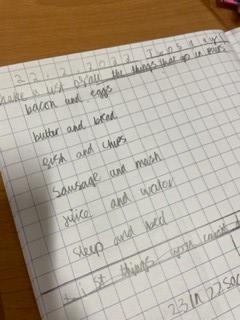 make a list of all the things that go in pairs
bacon and eggs
butter and bread
fish and chips
sausage and mash
juice and water
sleep and bed
list things